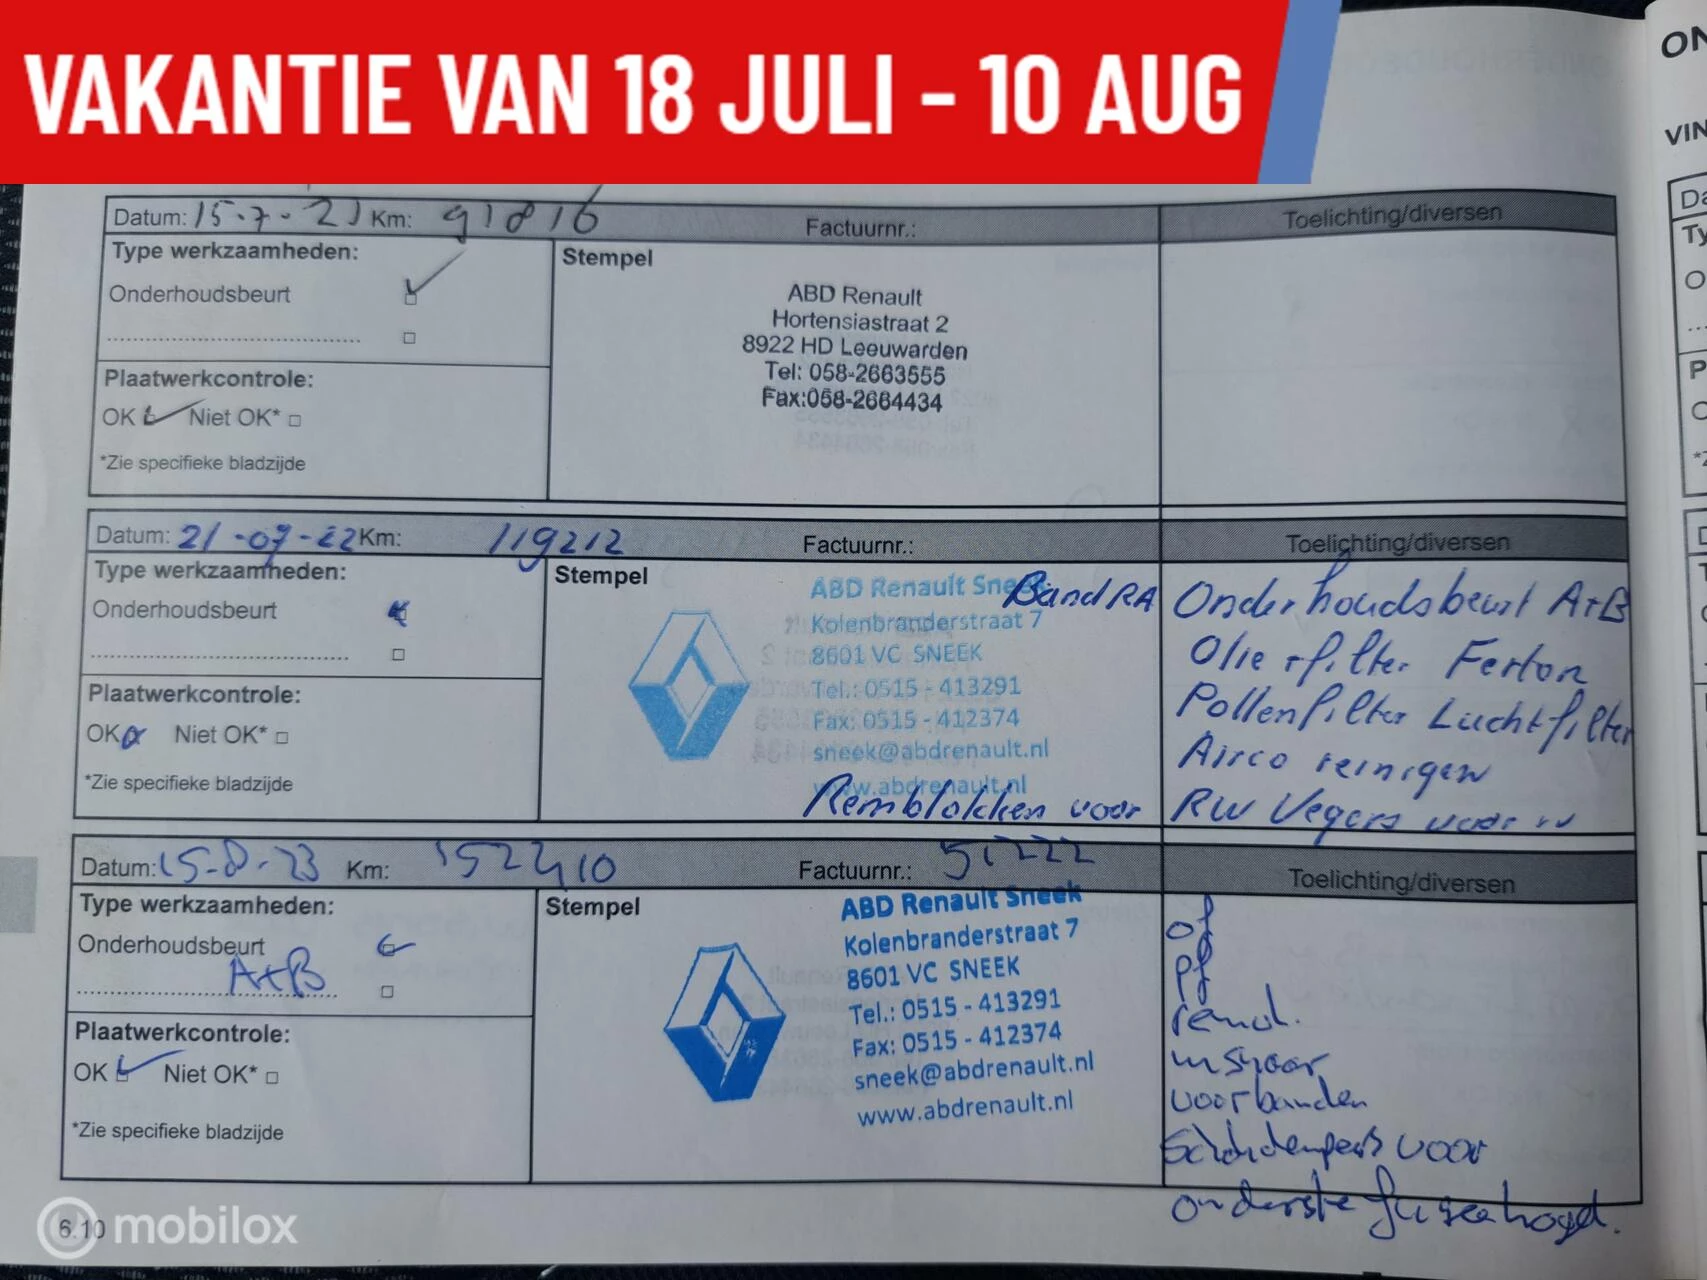 VAKANTIE VAN 18 JULI - 10 AUG
ON
VIN
Datum: 15-7-21 Km: 91816 Factuurnr.: Toelichting/diversen
Type werkzaamheden:
Stempel
Onderhoudsbeurt
ABD Renault
Hortensiastraat 2
8922 HD Leeuwarden
Tel: 058-2663555
Fax:058-2664434
Plaatwerkcontrole:
OK Niet OK*
*Zie specifieke bladzijde
Datum: 21-07-22 Km: 119212 Factuurnr.: Toelichting/diversen
Type werkzaamheden:
Stempel
Onderhoudsbeurt
ABD Renault Sneek
Band RA
Kolenbranderstraat 7
8601 VC SNEEK
Tel.: 0515 - 413291
Fax: 0515 - 412374
sneek@abdrenault.nl
www.abdrenault.nl
Remblokken voor
Onderhoudsbeurt A+B
Olie + filter
Pollenfilter Luchtfilter
Airco reinigen
RW Vegers voor
Plaatwerkcontrole:
OK Niet OK*
*Zie specifieke bladzijde
Datum: 15-8-23 Km: 152410 Factuurnr.: 51222 Toelichting/diversen
Type werkzaamheden:
Stempel
Onderhoudsbeurt
A+B
ABD Renault Sneek
Kolenbranderstraat 7
8601 VC SNEEK
Tel.: 0515 - 413291
Fax: 0515 - 412374
sneek@abdrenault.nl
www.abdrenault.nl
of
pf
remol.
voorbanden
voor
onderste
Plaatwerkcontrole:
OK Niet OK*
*Zie specifieke bladzijde
6.10
mobilox